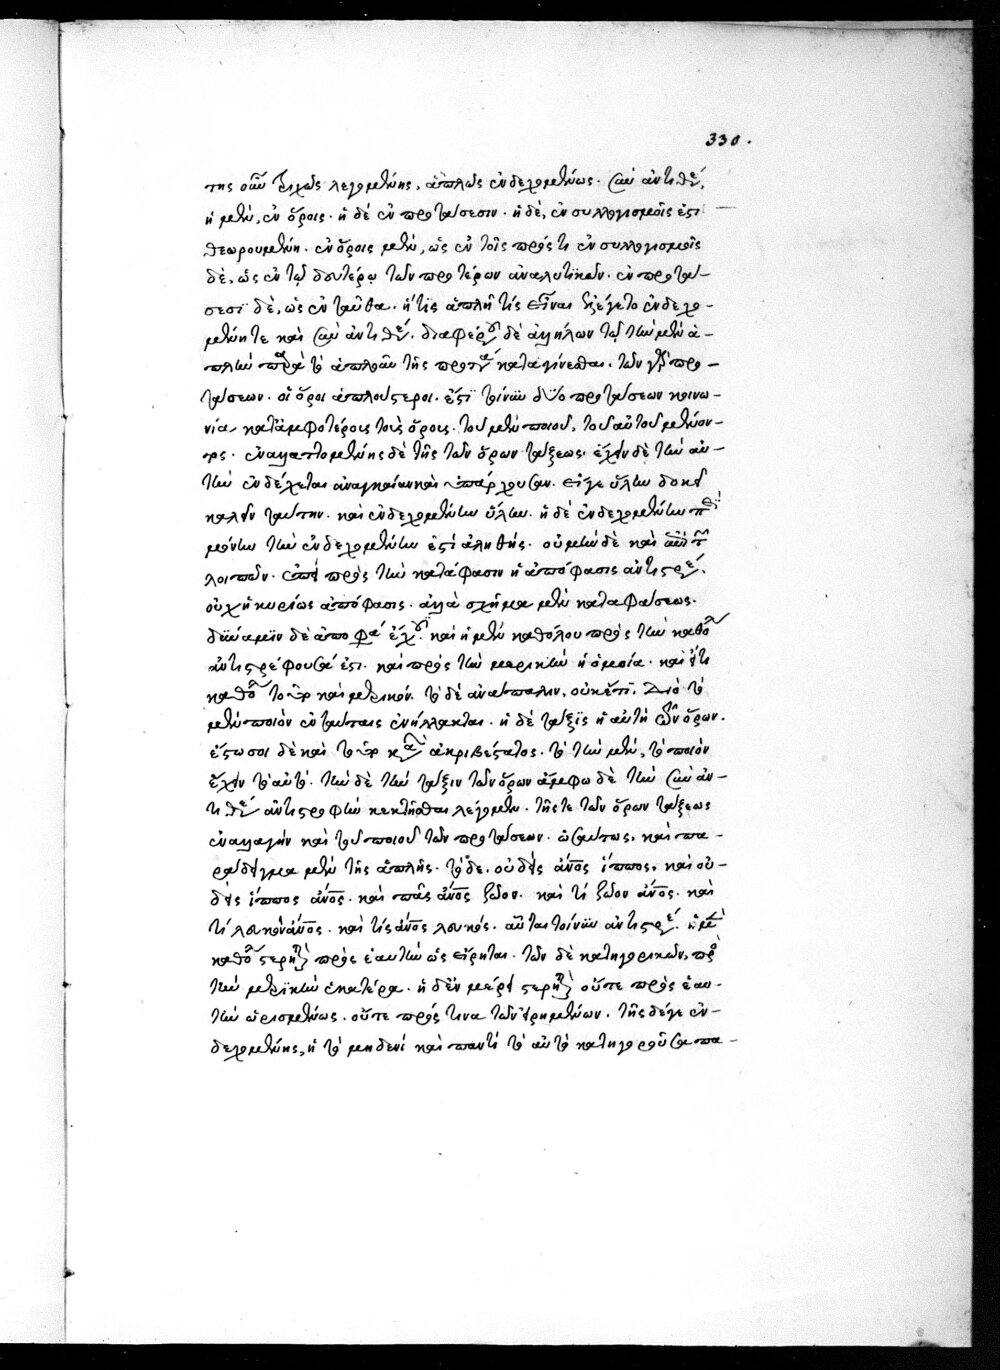 330.
της οὖν τριχῶς λεγομένης, ἁπλῶς ἐνδεχομένως. σὺν ἀντιθέ,
ἡ μὲν, ἐν ὅροις. ἡ δὲ ἐν προτάσεσιν. ἡ δὲ, ἐν συλλογισμοῖς ἐστι
θεωρουμένη. ἐν ὅροις μὲν, ὡς ἐν τοῖς πρός τι ἐν συλλογισμοῖς
δὲ, ὡς ἐν τῷ δευτέρῳ τῶν προτέρων ἀναλυτικῶν. ἐν προτά-
σεσι δὲ, ὡς ἐνταῦθα. ἥτις ἁπλῆ τίς εἶναι ἐλέγετο ἐνδεχο-
μένη τε καὶ σὺν ἀντιθέ. διαφέρου δὲ ἀλλήλων τῷ τὴν μὲν ἁ-
πλῆν παρὰ τὸ ἁπλοῦν τῆς προτά καταγίνεσθαι. τῶν γὰρ προ-
τάσεων. οἱ ὅροι ἁπλούστεροι. ἔστι τοίνυν δύο προτάσεων κοινω-
νία κατ' ἀμφοτέρους τοὺς ὅρους. τοῦ μὲν ποιοῦ, τοῦ αὐτοῦ μένον-
τος. ἐναλλαττομένης δὲ τῆς τῶν ὅρων τάξεως. ἔχειν δὲ τὴν αὐ-
τὴν ἐνδέχεται ἀναγκαίαν καὶ ὑπάρχουσαν. εἴγε ὕλην δοκεῖ
καλεῖν ταύτην. καὶ ἐνδεχομένην ὕλην. ἡ δὲ ἐνδεχομένην
μόνην τὴν ἐνδεχομένην ἐστὶ ἀληθής. οὐ μὴν δὲ καὶ ἐπὶ τῶν
λοιπῶν. ἐπεὶ πρὸς τὴν κατάφασιν ἡ ἀπόφασις ἀντιστρέ.
οὐχ ἡ κυρίως ἀπόφασις. ἀλλὰ σχῆμα μὲν καταφάσεως.
δύναμιν δὲ ἀποφά ἔχου. καὶ ἡ μὲν καθόλου πρὸς τὴν καθόλ
ἀντιστρέφουσά ἐστι. καὶ πρὸς τὴν μερικὴν ἡ ὁμοία. καὶ ἔτι
καθόλ καὶ μερικόν. τὸ δὲ ἀνάπαλιν, οὐκέτι. Διὸ τὸ
μὲν ποιὸν ἐν ταύταις ἐνήλλακται. ἡ δὲ τάξις ἡ αὐτὴ τῶν ὅρων.
ἔστω σοι δὲ καὶ ἀκριβέστατος. τὸ τὴν μὲν, τὸ ποιὸν
ἔχειν τὸ αὐτό. τὴν δὲ τὴν τάξιν τῶν ὅρων ἄμφω δὲ τὴν σὺν ἀν-
τιθέ ἀντιστροφὴν κεκτῆσθαι λέγομεν. τῆς τε τῶν ὅρων τάξεως
ἐναλλαγὴν καὶ τοῦ ποιοῦ τῶν προτάσεων. ὡσαύτως, καὶ πα-
ράδειγμα μὲν τῆς ἁπλῆς. τόδε. οὐδεὶς ἄνος ἵππος, καὶ οὐ-
δεὶς ἵππος ἄνος. καὶ πᾶς ἄνος ζῶον. καὶ τὶ ζῶον ἄνος. καὶ
τὶ λευκὸν ἄνος. καὶ τὶς ἄνος λευκός. αὗται τοίνυν ἀντιστρέ. ἡ μὲν
καθόλ στερη πρὸς ἑαυτὴν ὡς εἴρηται. τῶν δὲ κατηγορικῶν, πρὸς
τὴν μερικὴν ἑκατέρα. ἡ δ' ἐν μέρει στερη οὔτε πρὸς ἑαυ-
τὴν ὡρισμένως. οὔτε πρός τινα τῶν εἰρημένων. τῆς δέγε ἐν-
δεχομένης, ἡ τὸ μηδενὶ καὶ παντὶ τὸ αὐτὸ κατηγοροῦσα πα-